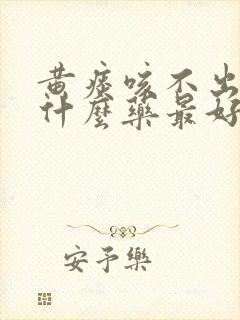 黄痰咳不出
什麼藥最好
安予樂